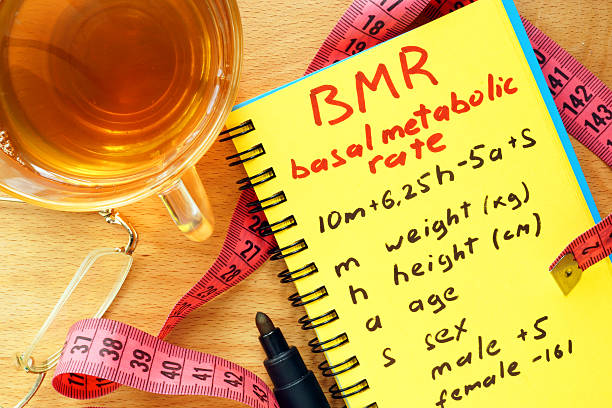 BMR
basal metabolic
rate
10m+6,25h-5a+s
m weight (kg)
h height (cm)
a age
s sex
male +5
female -161
18 17
141 142 143
2
37 38 39 40 41 42 43